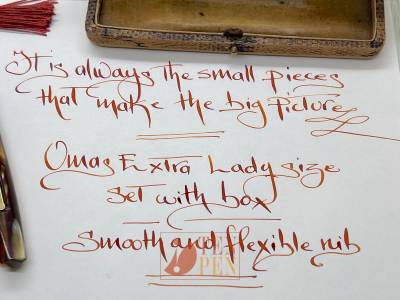 It is always the small pieces
that make the big picture
Omas Extra Lady size
set with box
Smooth and flexible nib
TENPEN